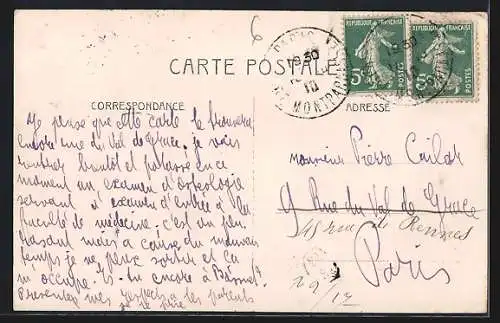 6
REPUBLIQUE FRANÇAISE
REPUBLIQUE FRANÇAISE
5c POSTES
5c POSTES
PARIS
19 30
10
MONTPARNASSE
CARTE POSTALE
CORRESPONDANCE
ADRESSE
Je pense que cette carte te trouvera
encore rue du Val de Grace. je vais
rentrer bientôt et prépare en ce
moment un examen d'ostéologie
servant d'examen d'entrée à la
faculté de médecine; c'est un peu
rasant mais a cause du mauvais
temps je ne peux sortir et ça
m'occupe. Es-tu encore à
Présentez mes respects à tes parents
je te prie
Monsieur Pierre
9 Rue du Val de Grace
rue de Rennes
Paris
29/12